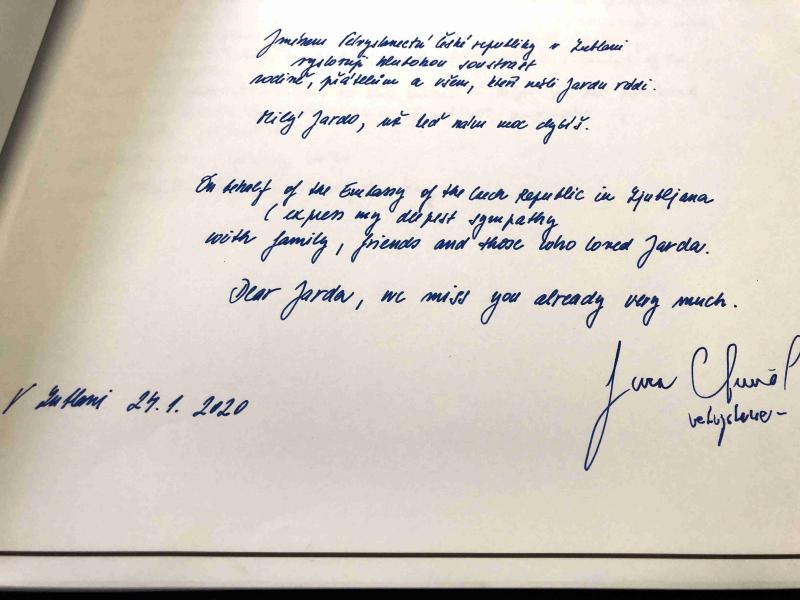 Jménem Velvyslanectví České republiky v Lublani
vyslovuji hlubokou soustrast
rodině, přátelům a všem, kteří měli Jardu rádi.
Milý Jardo, už teď nám moc chybíš.
On behalf of the Embassy of the Czech Republic in Ljubljana
I express my deepest sympathy
with family, friends and those who loved Jarda.
Dear Jarda, we miss you already very much.
V Lublani 24.1. 2020